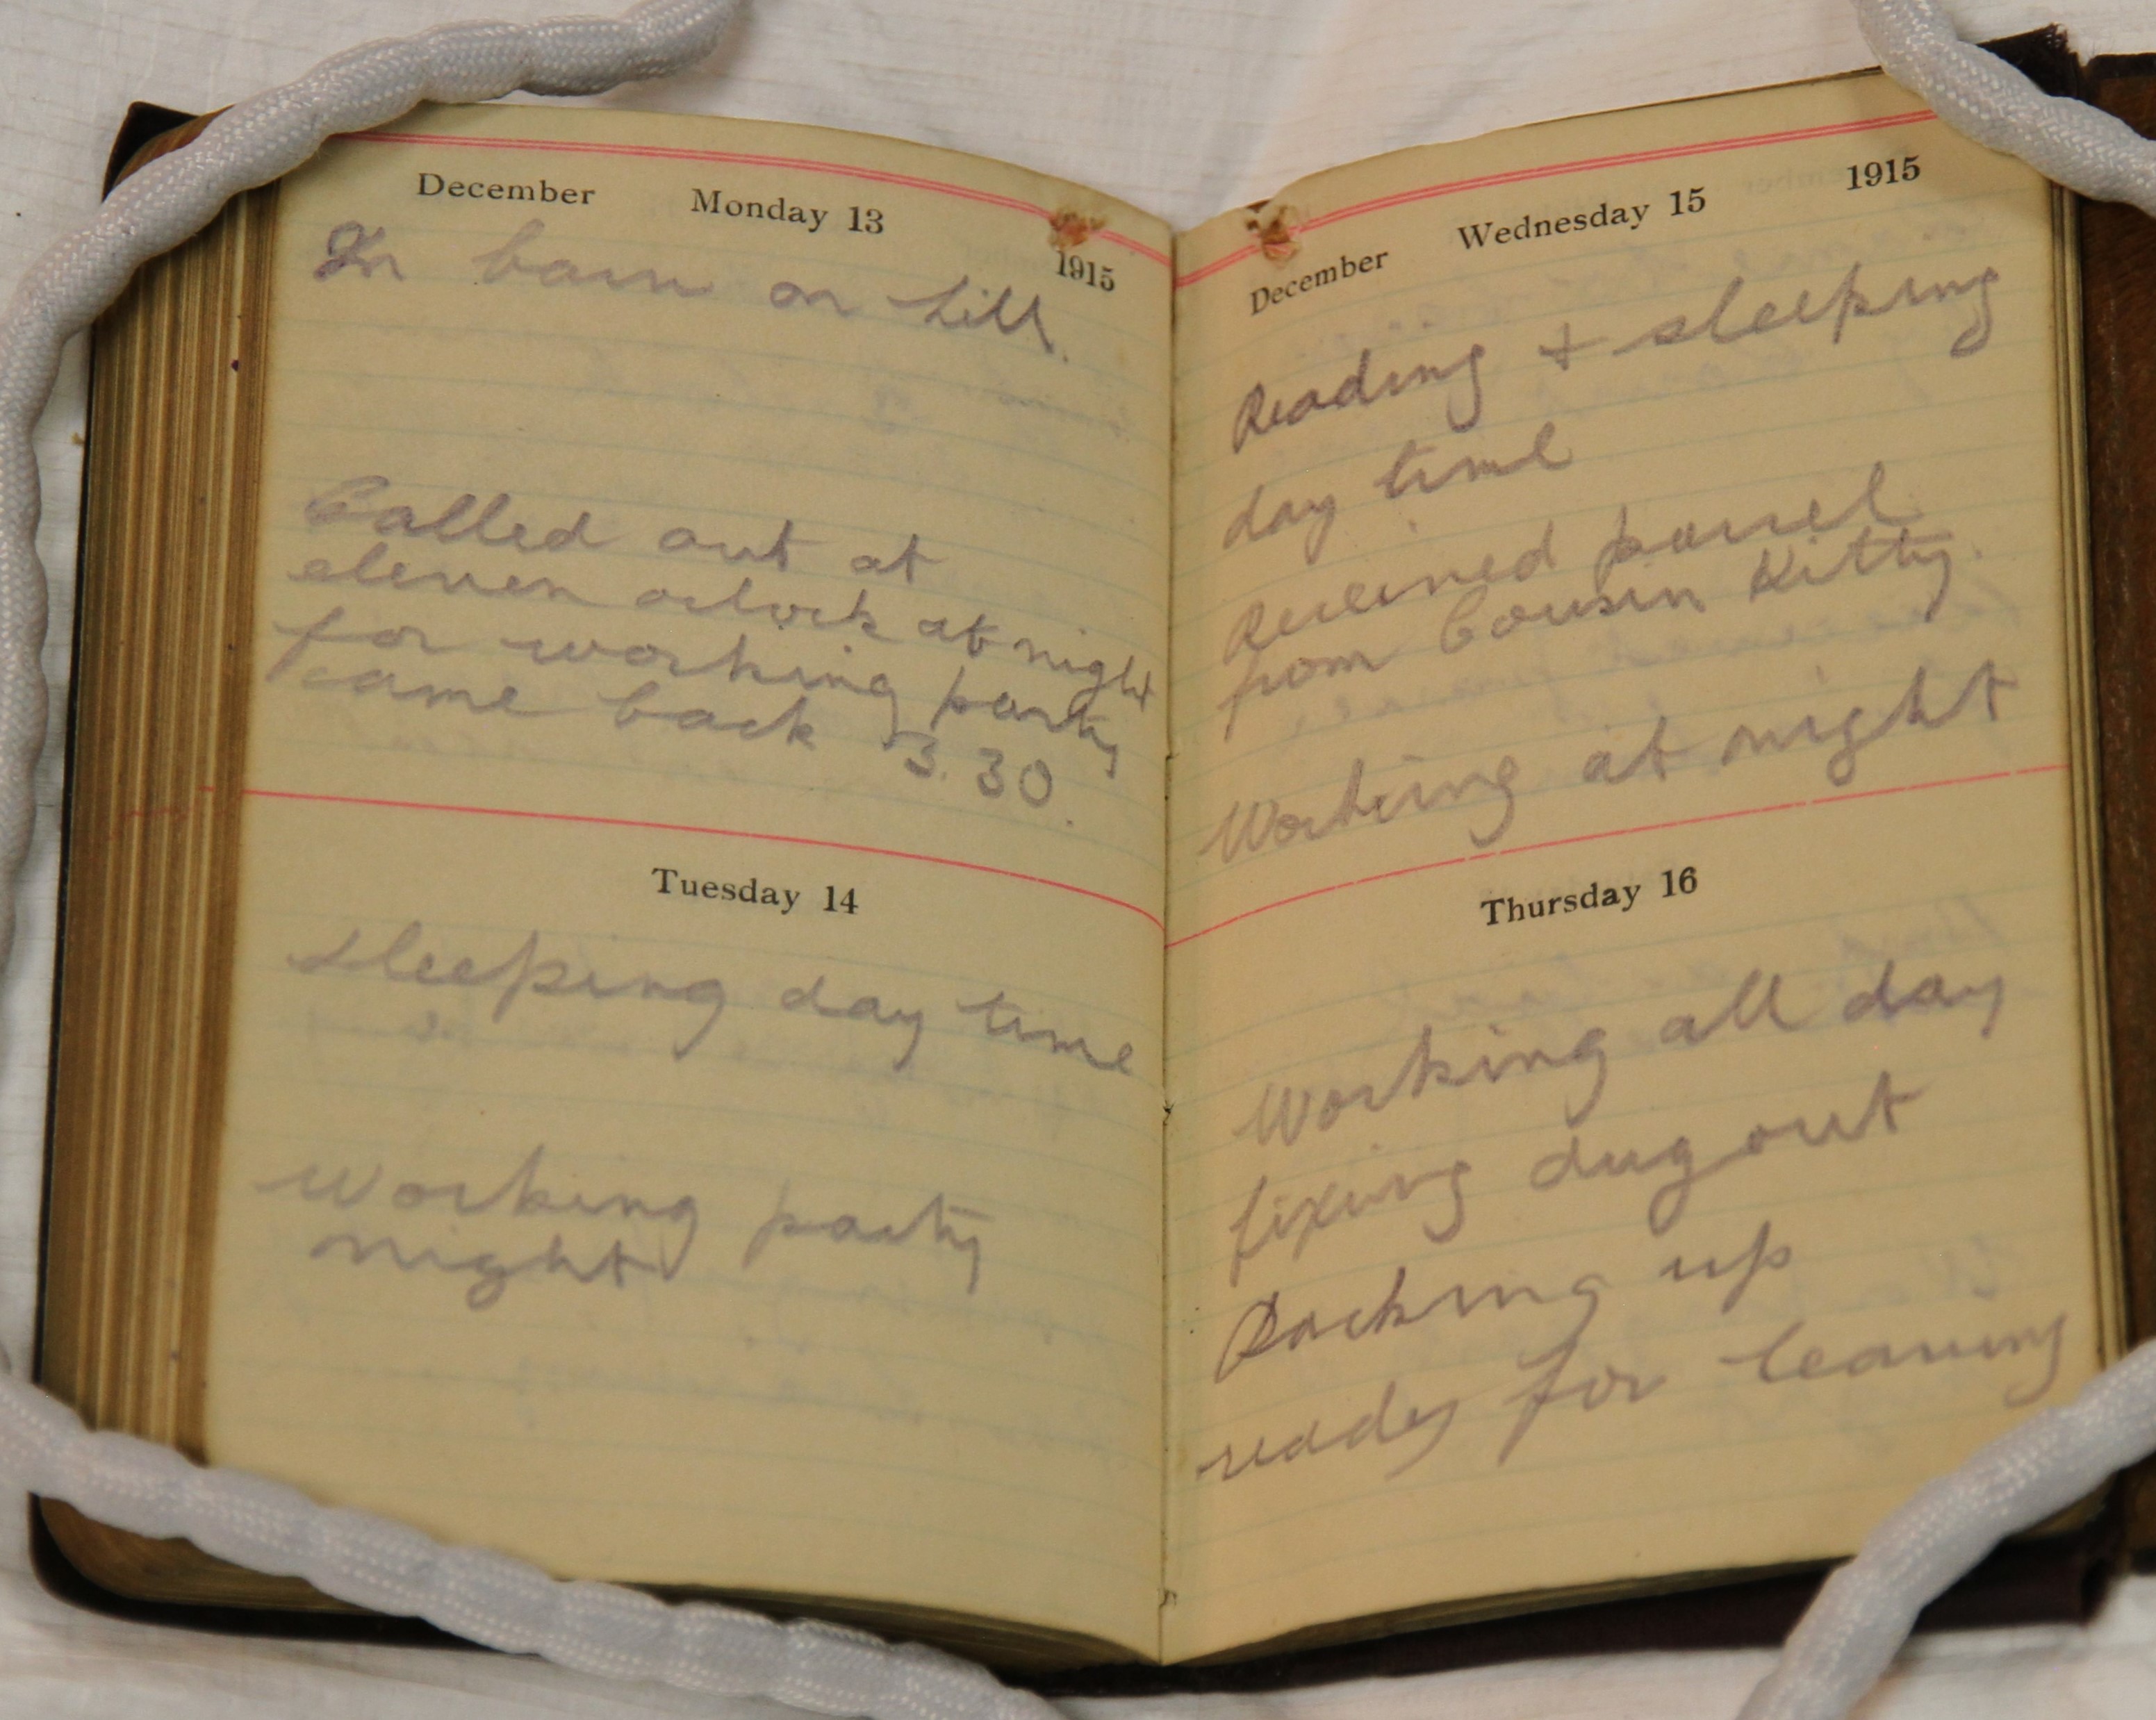 December Monday 13 1915
In barn on hill.
Called out at
eleven oclock at night
for working party
came back 3.30.
Tuesday 14
sleeping day time
working party
night
December Wednesday 15 1915
Reading + sleeping
day time
Received parcel
from Cousin Kitty.
Working at night
Thursday 16
Working all day
fixing dug out
Packing up
ready for leaving